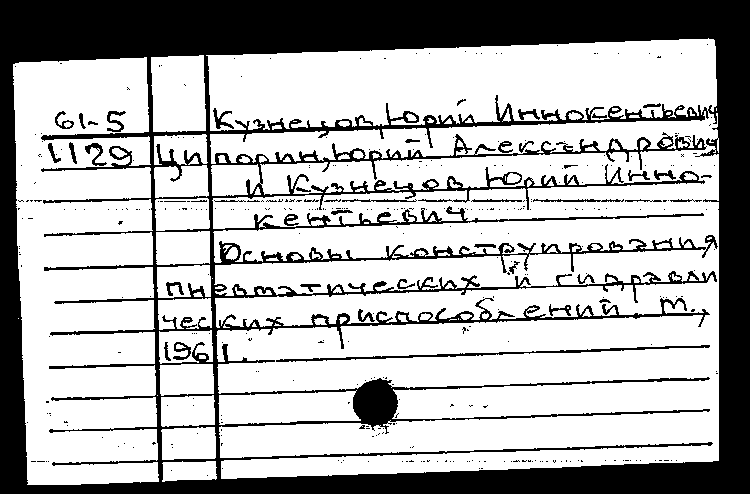 61-5 Кузнецов, Юрий Иннокентьевич
1129 Ципорин, Юрий Александрович
и Кузнецов, Юрий Инно-
кентьевич.
Основы конструирования
пневматических и гидравли
ческих приспособлений. М.,
1961.